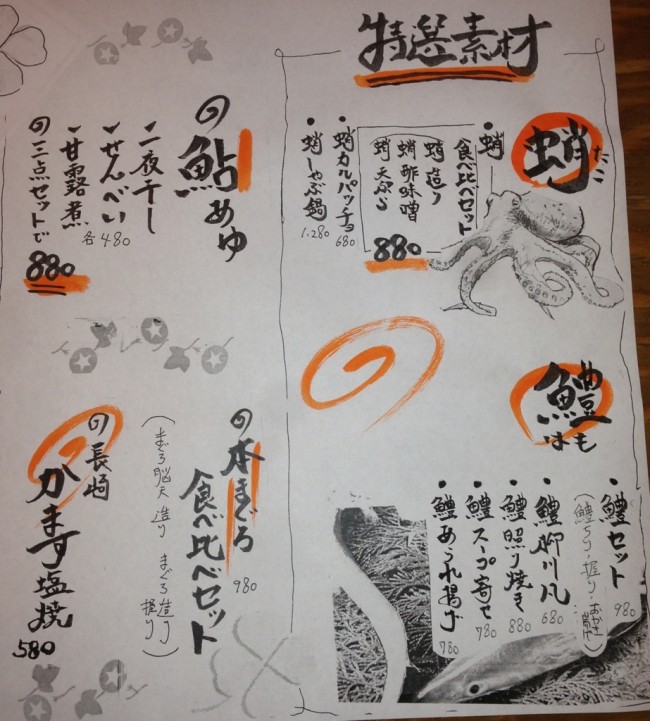 特選素材
蛸
たこ
・蛸
食べ比べセット
蛸造り
蛸酢味噌
蛸天ぷら
880
・蛸カルパッチョ
680
・蛸しゃぶ鍋
1.280
鱧
はも
・鱧セット
980
(鱧ちり・握り・おかき揚げ)
・鱧柳川風
680
・鱧照り焼き
880
・鱧スープ寄せ
780
・鱧あられ揚げ
780
鮎あゆ
一夜干し
せんべい
甘露煮
各480
三点セットで
880
本まぐろ
食べ比べセット
980
(まぐろ脳天造り まぐろ造り 握り)
長崎
かます塩焼
580